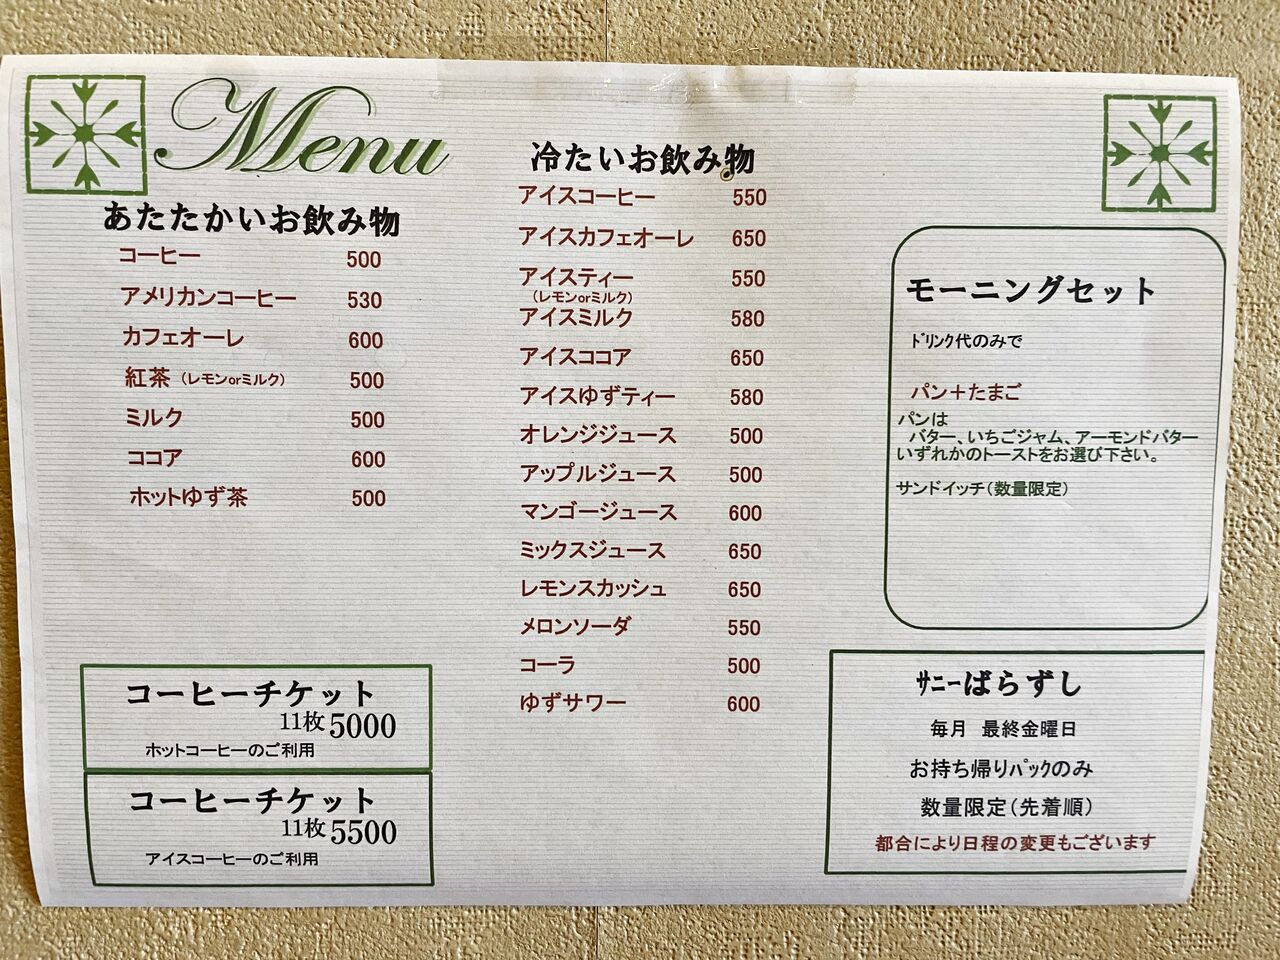 Menu
あたたかいお飲み物
コーヒー 500
アメリカンコーヒー 530
カフェオーレ 600
紅茶 (レモンorミルク) 500
ミルク 500
ココア 600
ホットゆず茶 500
コーヒーチケット
11枚 5000
ホットコーヒーのご利用
コーヒーチケット
11枚 5500
アイスコーヒーのご利用
冷たいお飲み物
アイスコーヒー 550
アイスカフェオーレ 650
アイスティー 550
(レモンorミルク)
アイスミルク 580
アイスココア 650
アイスゆずティー 580
オレンジジュース 500
アップルジュース 500
マンゴージュース 600
ミックスジュース 650
レモンスカッシュ 650
メロンソーダ 550
コーラ 500
ゆずサワー 600
モーニングセット
ﾄﾞﾘﾝｸ代のみで
パン＋たまご
パンは
バター、いちごジャム、アーモンドバター
いずれかのトーストをお選び下さい。
サンドイッチ(数量限定)
ｻﾆｰばらずし
毎月 最終金曜日
お持ち帰りﾊﾟｯｸのみ
数量限定(先着順)
都合により日程の変更もございます